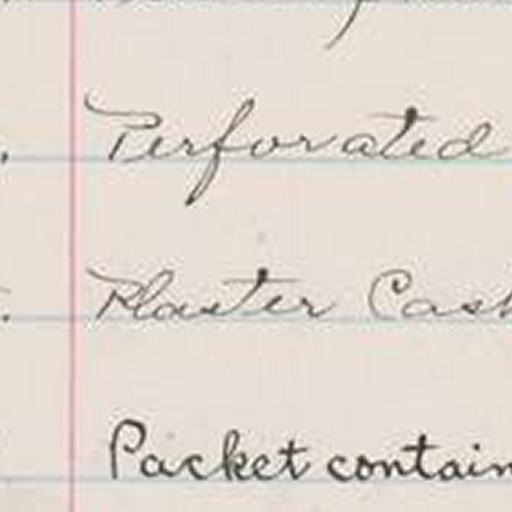 Perforated
Plaster Cast
Packet contain